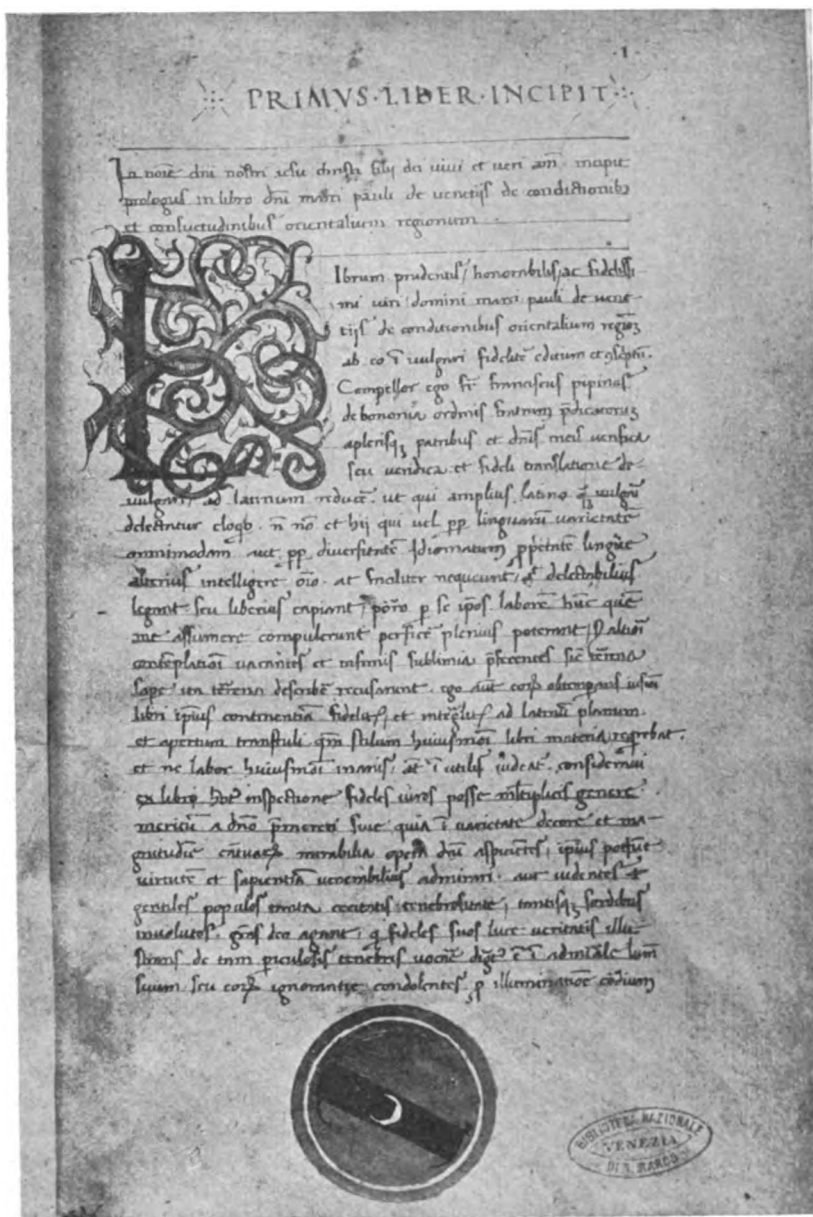 ·1·
PRIMVS·LIBER·INCIPIT
In noīe dn̄i nostri iesu christi filij dei uiui et ueri am̄. incipit
prologus in libro dn̄i marci pauli de uenetijs de condictionibꝫ
et consuetudinibus orientalium regionum
LIbrum prudentis, honorabilis, ac fidelissi-
mi uiri domini marci pauli de uene-
tijs de conditionibus orientalium
ab eo ī uulgari editum et
Compellor ego fr̄ franciscus pipinus
de bononia ordinis fratrum p̄dicatorꝫ
aplerisqꝫ patribus et dn̄is meis
seu uendica et fideli translatione de
uulgari ad latinum reducē. ut qui amplius latino uulgari
delectantur eloqō. n̄ nō et hij qui uel pp̄ linguarū uarietatē
omnimodam aut pp̄ diuersitatē Idiomatum lingue
alterius intelligere oīo. at faciliter nequeunt, delectabilius
legant seu liberius capiant, porro p se ip̄os laborē hūc quē
me assumere compulerunt perficē plenius poterant,
uacantes et infimis sublimia p̄ferentes sic terrena
sape ita terrena describē recusarunt. ego aut̄ obtemperans
libri ip̄ius continentiā et ad latinū planum
et apertum transtuli qm̄ stilum huiusmōi libri materia
et ne labor huiusmōi inanis, at ī utilis uideat. consideraui
ex libri inspectione fideles uiros posse multiplicis
a dn̄o p̄mereri siue quia ī uarietate decore et ma-
gnitudīe mirabilia opera dn̄i aspicientes, ip̄ius
uirtutē et sapientiā uenerabilius admirari. aut uidentes
gentiles populos tanta cecitatis tenebrositate, tantisqꝫ sordibus
inuolutos. grās deo agant, fideles suos luce ueritatis illu-
strans de tam piculosis tenebris uocare
suum seu ignorantie condolentes, p illuminatiōe cordium
BIBLIOTECA NAZIONALE
VENEZIA
DI S. MARCO